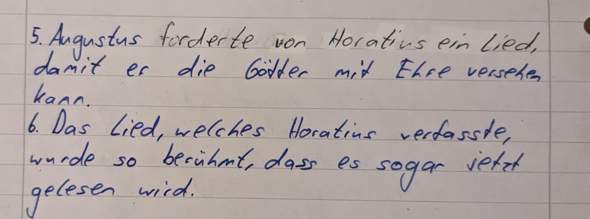 5. Augustus forderte von Horatius ein Lied,
damit er die Götter mit Ehre versehen
kann.
6. Das Lied, welches Horatius verfasste,
wurde so berühmt, dass es sogar jetzt
gelesen wird.